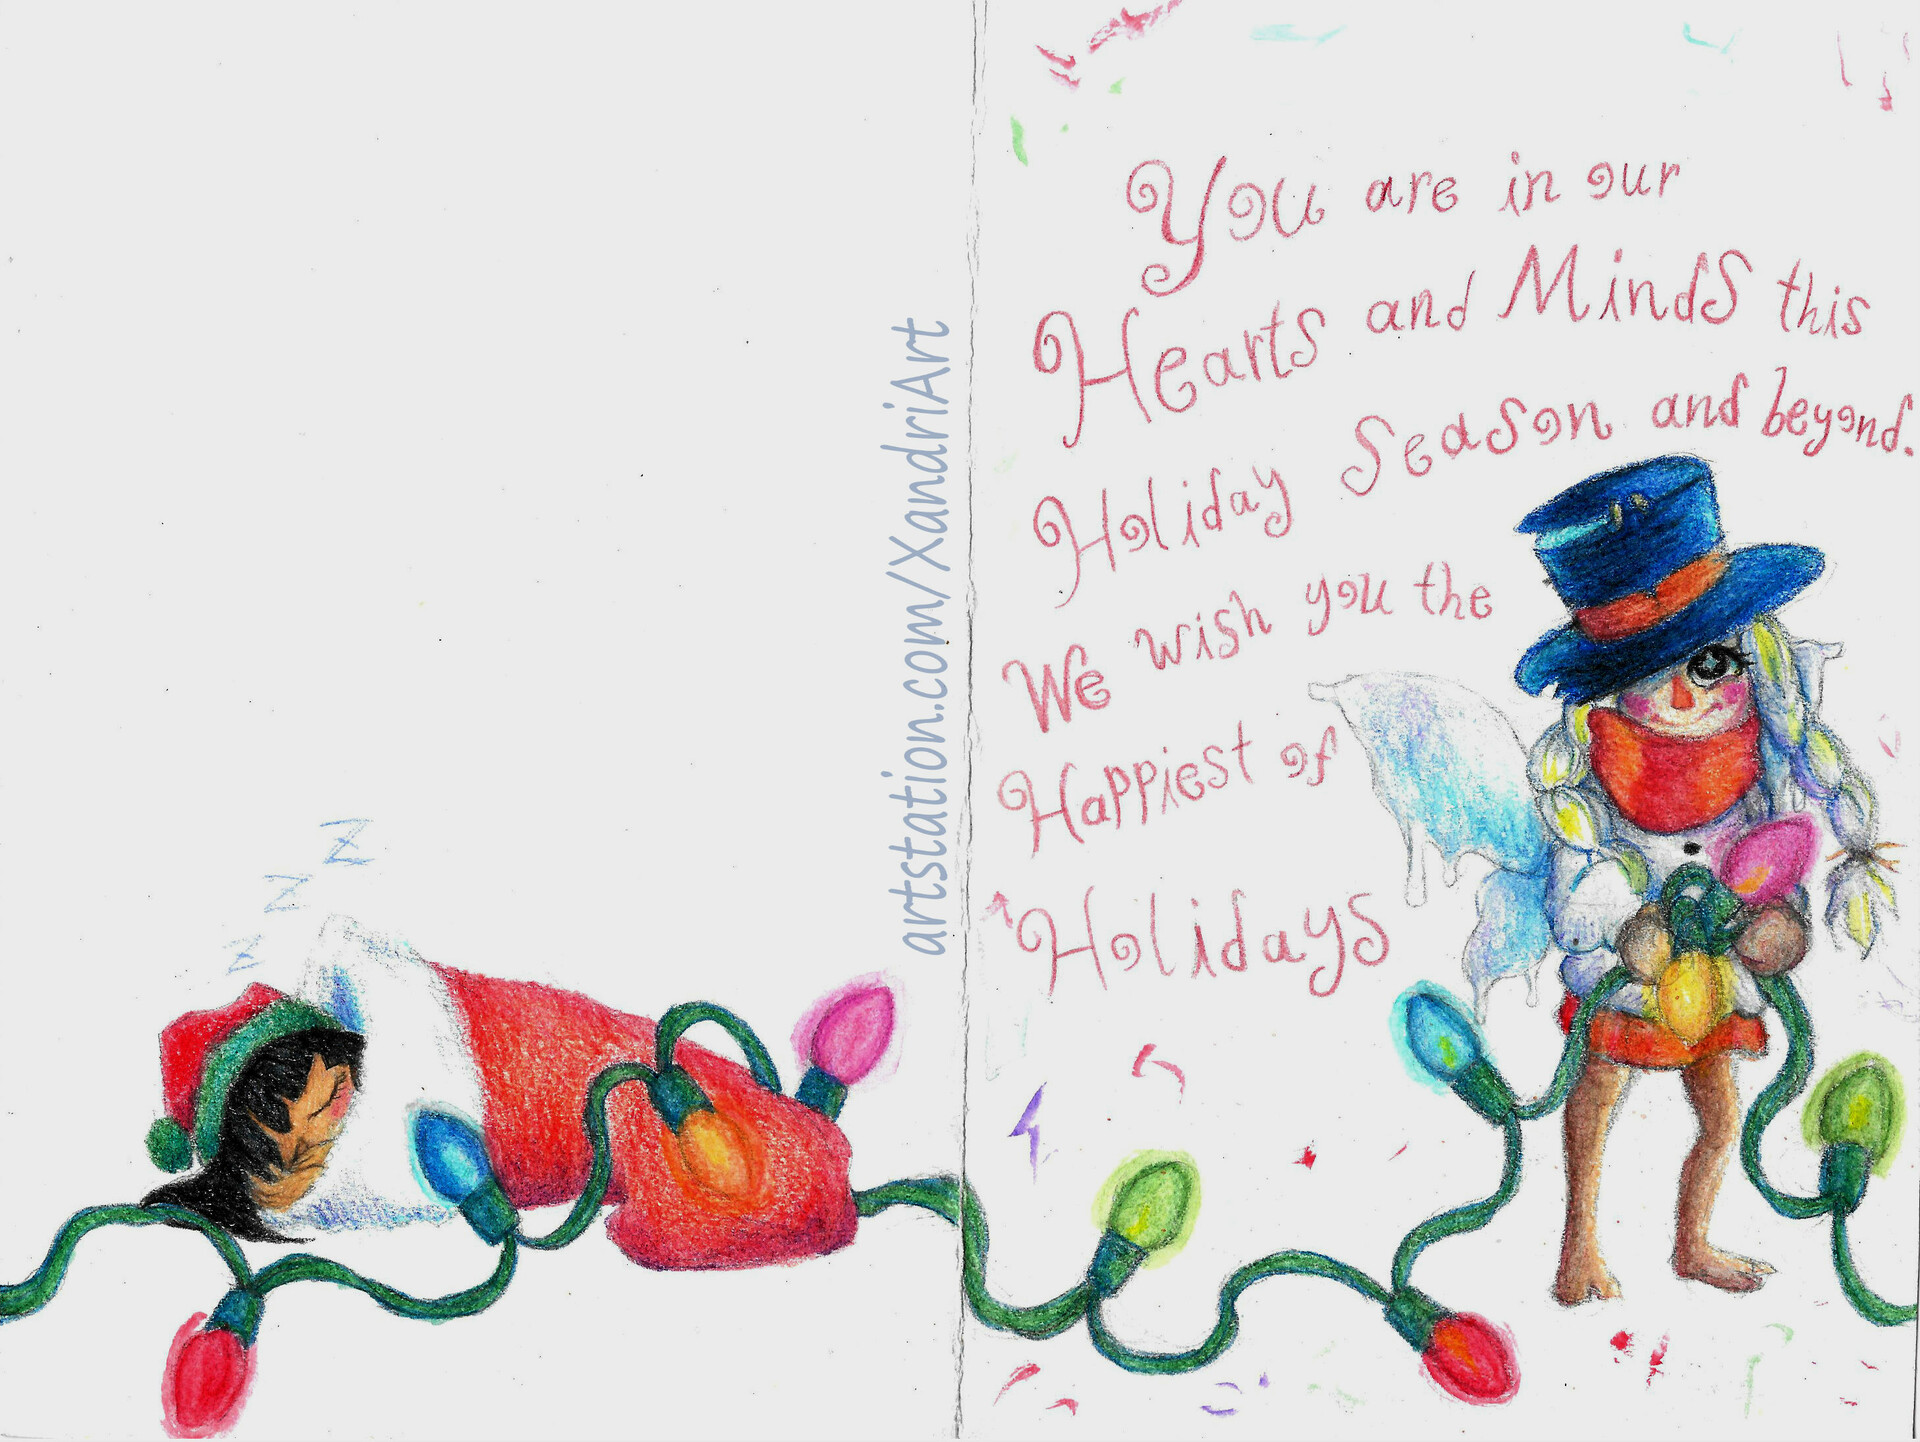 z z z
artstation.com/XandriArt
You are in our
Hearts and Minds this
Holiday Season and beyond.
We wish you the
Happiest of
Holidays